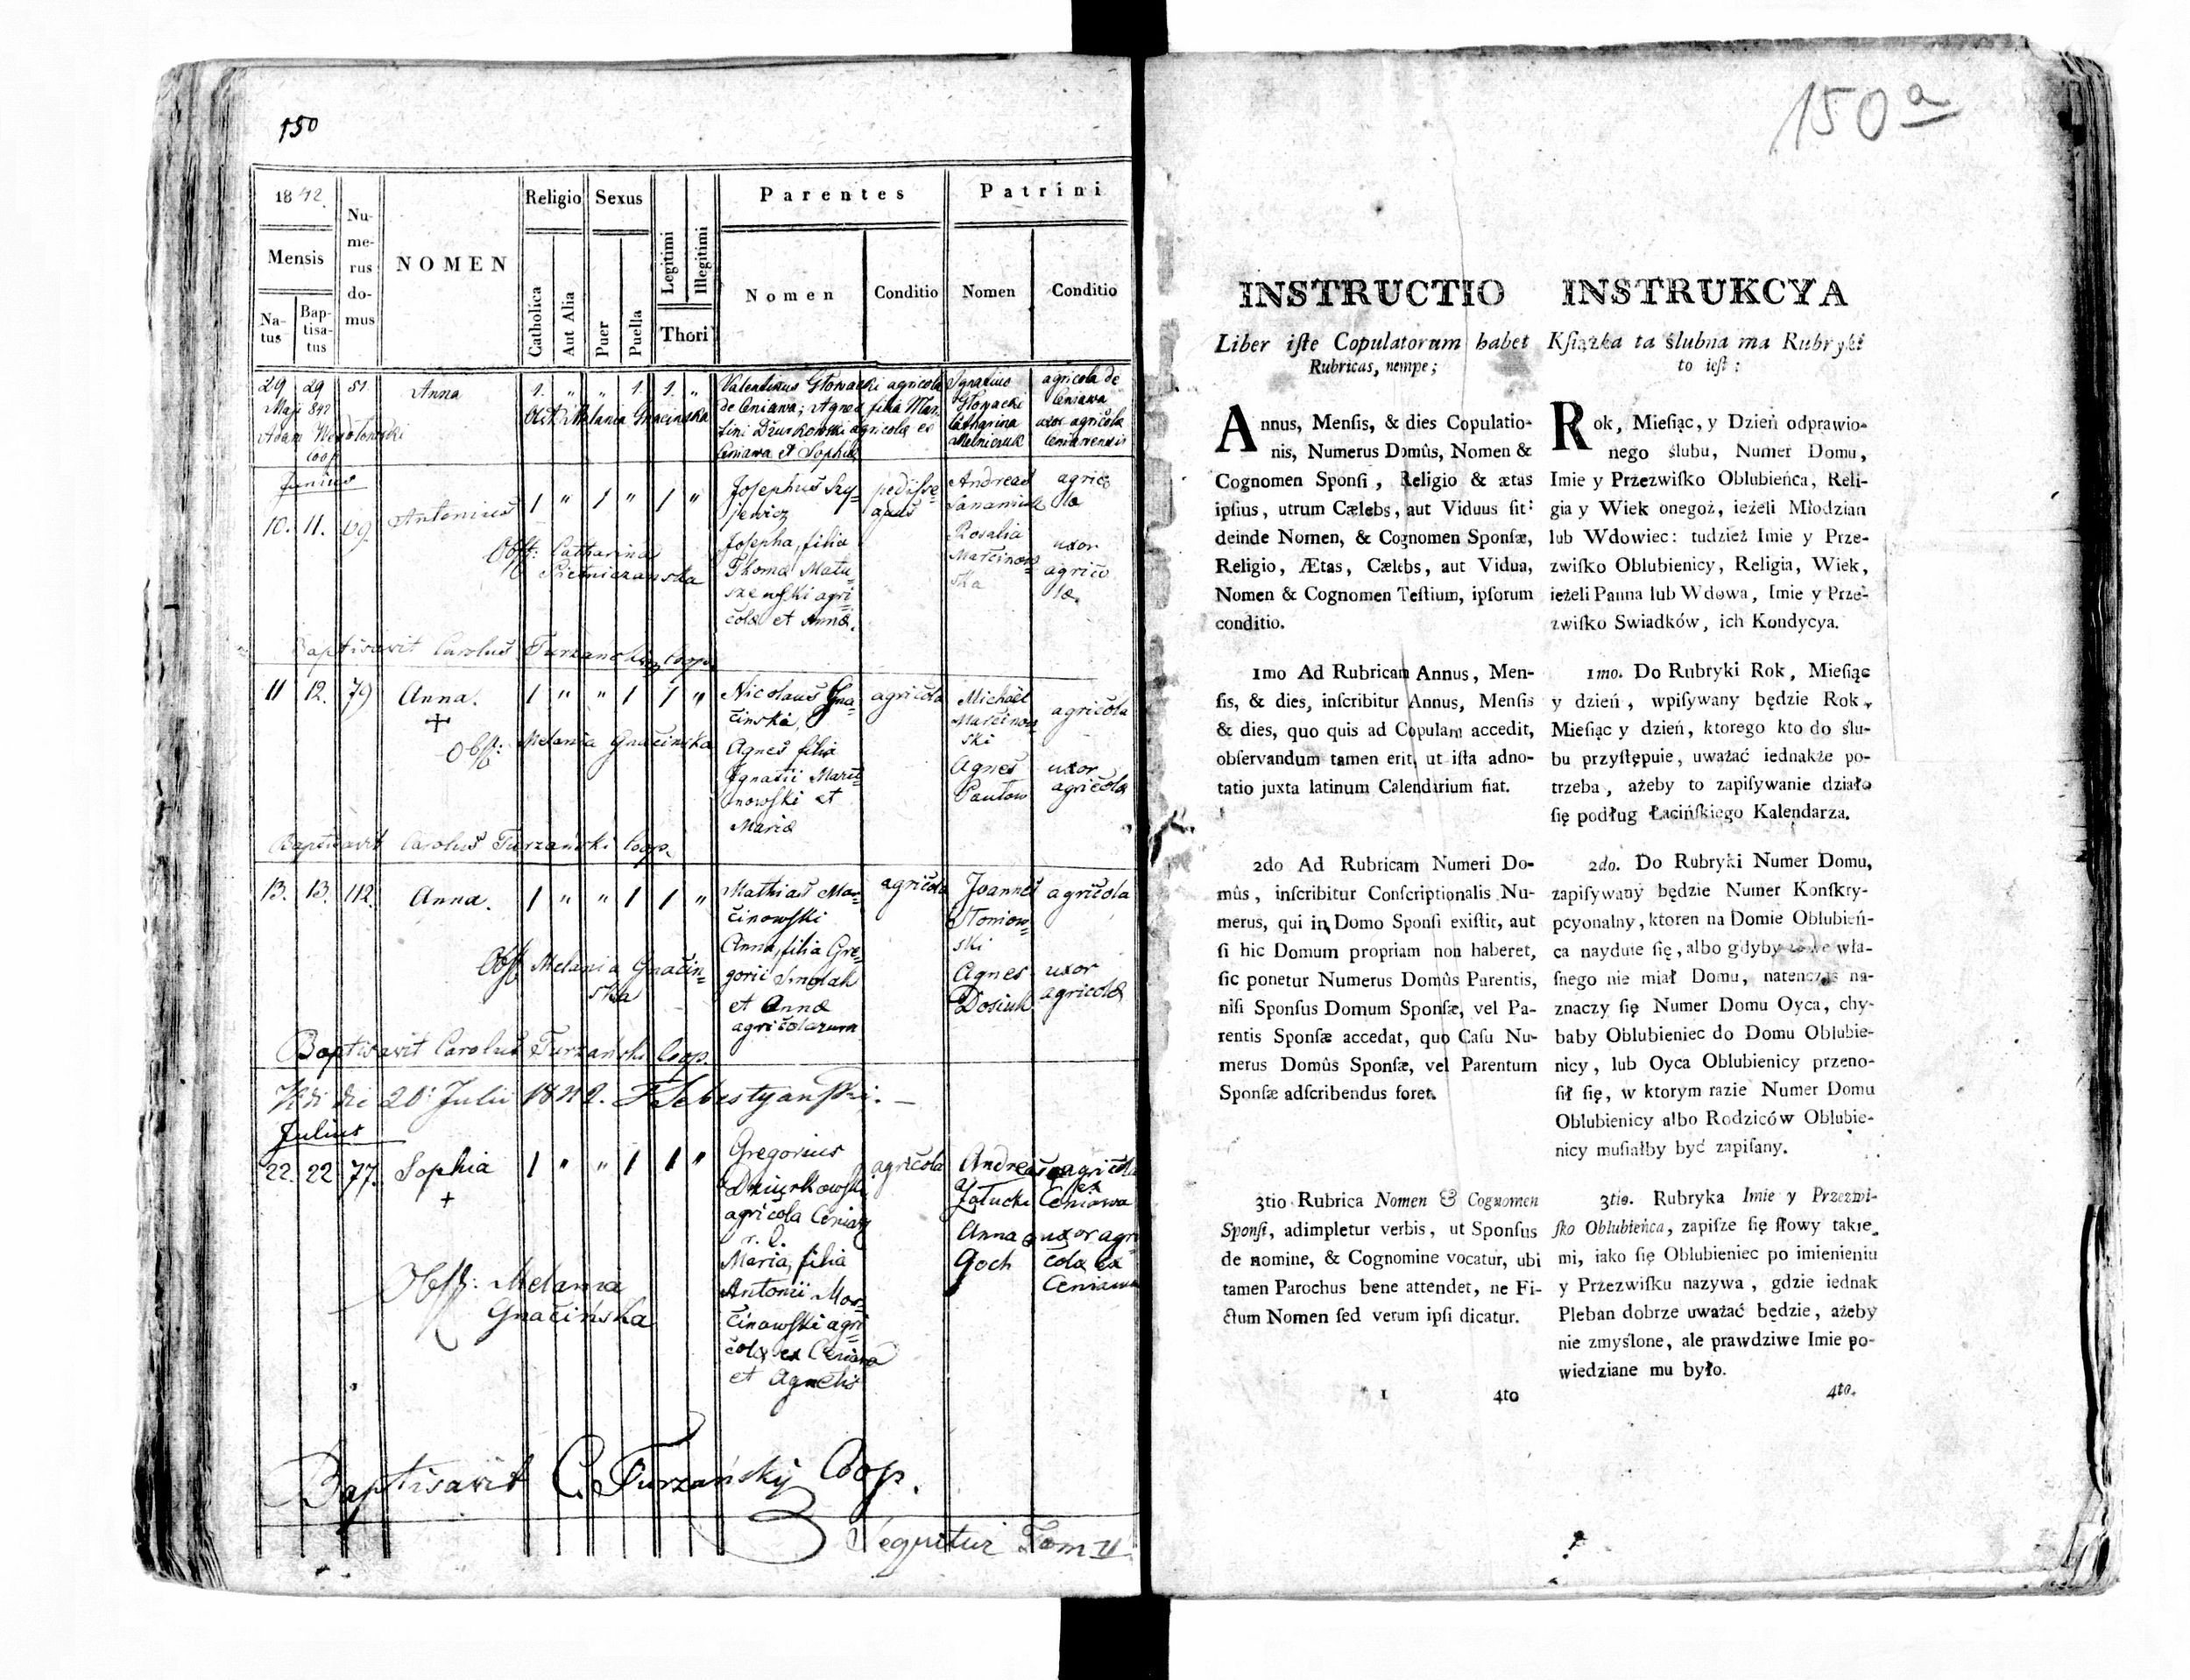 150
1842.
Mensis
Na-
tus
Bap-
tisa-
tus
Nu-
me-
rus
do-
mus
NOMEN
Religio
Catholica
Aut Alia
Sexus
Puer
Puella
Legitimi
Illegitimi
Thori
Parentes
Nomen
Conditio
Patrini
Nomen
Conditio
29 29 51. Anna 1. " " 1. 1. "
Maji 842
Adam
Coop
Obst. Melania Gnacinska
Valentinus Głowacki agricola
de Ceniawa; Agnes filia Mar-
tini Dżurkowski agricolæ ex
Ceniawa et Sophiæ
Ignatius
Głowacki
Catharina
Melniczuk
agricola de
Ceniawa
uxor agricolæ
Junius
10. 11. 69. Antonius 1 " 1 " 1 "
Obst: Catharina
Josephus Szy-
jewicz
Josepha, filia
Thomæ Matu-
szewski agri-
colæ et Annæ.
pedisse-
quus
Andreas
Rosalia
Marcinow-
ska
agrico-
la
uxor
agrico-
læ.
Baptisavit Carolus Turzanski Coop.
11 12. 79 Anna. 1 " " 1 1 "
+
Obst: Melania Gnacinska
Nicolaus Gna-
cinski,
Agnes filia
Ignatii Marci-
nowski et
Mariæ
agricola
Michael
Marcinow-
ski
Agnes
Pautow
agricola
uxor
agricolæ
Baptisavit Carolus Turzański Coop.
13. 13. 112. Anna. 1 " " 1 1 "
Obst Melania Gnacin-
ska
Mathias Mar-
cinowski
Anna, filia Gre-
gorii Smolak
et Annæ
agricolarum
agricola
Joannes
Słoniow-
ski
Agnes
Dosiuk
agricola
uxor
agricolæ
Baptisavit Carolus Turzański Coop.
Vidi die 20 Julii 1842. F Sebestyański. —
Julius
22. 22 77. Sophia 1 " " 1 1 "
+
Obst: Melania
Gnacińska
Gregorius
Dziurkowski
agricola
r. l.
Maria, filia
Antonii Mar-
cinowski agri-
colæ ex Ceniawa
et Agnetis
agricola
Andreas
Załucki
Anna
Goch
agricola
ex
Ceniawa
uxor agri-
colæ ex
Ceniawa
Baptisavit C. Turzańsky Coop.
Sequitur Tom II
150 a
INSTRUCTIO
Liber iſte Copulatorum habet
Rubricas, nempe;
Annus, Menſis, & dies Copulatio-
nis, Numerus Domûs, Nomen &
Cognomen Sponſi, Religio & ætas
ipſius, utrum Cælebs, aut Viduus ſit:
deinde Nomen, & Cognomen Sponſæ,
Religio, Ætas, Cælebs, aut Vidua,
Nomen & Cognomen Teſtium, ipſorum
conditio.
1mo Ad Rubricam Annus, Men-
ſis, & dies, inſcribitur Annus, Menſis
& dies, quo quis ad Copulam accedit,
obſervandum tamen erit, ut iſta adno-
tatio juxta latinum Calendarium fiat.
2do Ad Rubricam Numeri Do-
mûs, inſcribitur Conſcriptionalis Nu-
merus, qui in Domo Sponſi exiſtit, aut
ſi hic Domum propriam non haberet,
ſic ponetur Numerus Domûs Parentis,
niſi Sponſus Domum Sponſæ, vel Pa-
rentis Sponſæ accedat, quo Caſu Nu-
merus Domûs Sponſæ, vel Parentum
Sponſæ adſcribendus foret.
3tio Rubrica Nomen & Cognomen
Sponſi, adimpletur verbis, ut Sponſus
de nomine, & Cognomine vocatur, ubi
tamen Parochus bene attendet, ne Fi-
ctum Nomen ſed verum ipſi dicatur.
1 4to
INSTRUKCYA
Kſiążka ta ślubna ma Rubryki
to ieſt:
Rok, Mieſiąc, y Dzień odprawio-
nego ślubu, Numer Domu,
Imie y Przezwiſko Oblubieńca, Reli-
gia y Wiek onegoż, ieżeli Młodzian
lub Wdowiec: tudzież Imie y Prze-
zwiſko Oblubienicy, Religia, Wiek,
ieżeli Panna lub Wdowa, Imie y Prze-
zwiſko Swiadków, ich Kondycya.
1mo. Do Rubryki Rok, Mieſiąc
y dzień, wpiſywany będzie Rok,
Mieſiąc y dzień, ktorego kto do ślu-
bu przyſtępuie, uważać iednakże po-
trzeba, ażeby to zapiſywanie działo
się podług Łacińſkiego Kalendarza.
2do. Do Rubryki Numer Domu,
zapiſywany będzie Numer Konſkry-
pcyonalny, ktoren na Domie Oblubień-
ca nayduie ſię, albo gdyby wła-
ſnego nie miał Domu, natenczas na-
znaczy ſię Numer Domu Oyca, chy-
baby Oblubieniec do Domu Oblubie-
nicy, lub Oyca Oblubienicy przeno-
ſił ſię, w ktorym razie Numer Domu
Oblubienicy albo Rodziców Oblubie-
nicy muſiałby być zapiſany.
3tio. Rubryka Imie y Przezwi-
ſko Oblubieńca, zapiſze ſię ſłowy takie-
mi, iako ſię Oblubieniec po imienieniu
y Przezwiſku nazywa, gdzie iednak
Pleban dobrze uważać będzie, ażeby
nie zmyślone, ale prawdziwe Imie po-
wiedziane mu było.
4to.